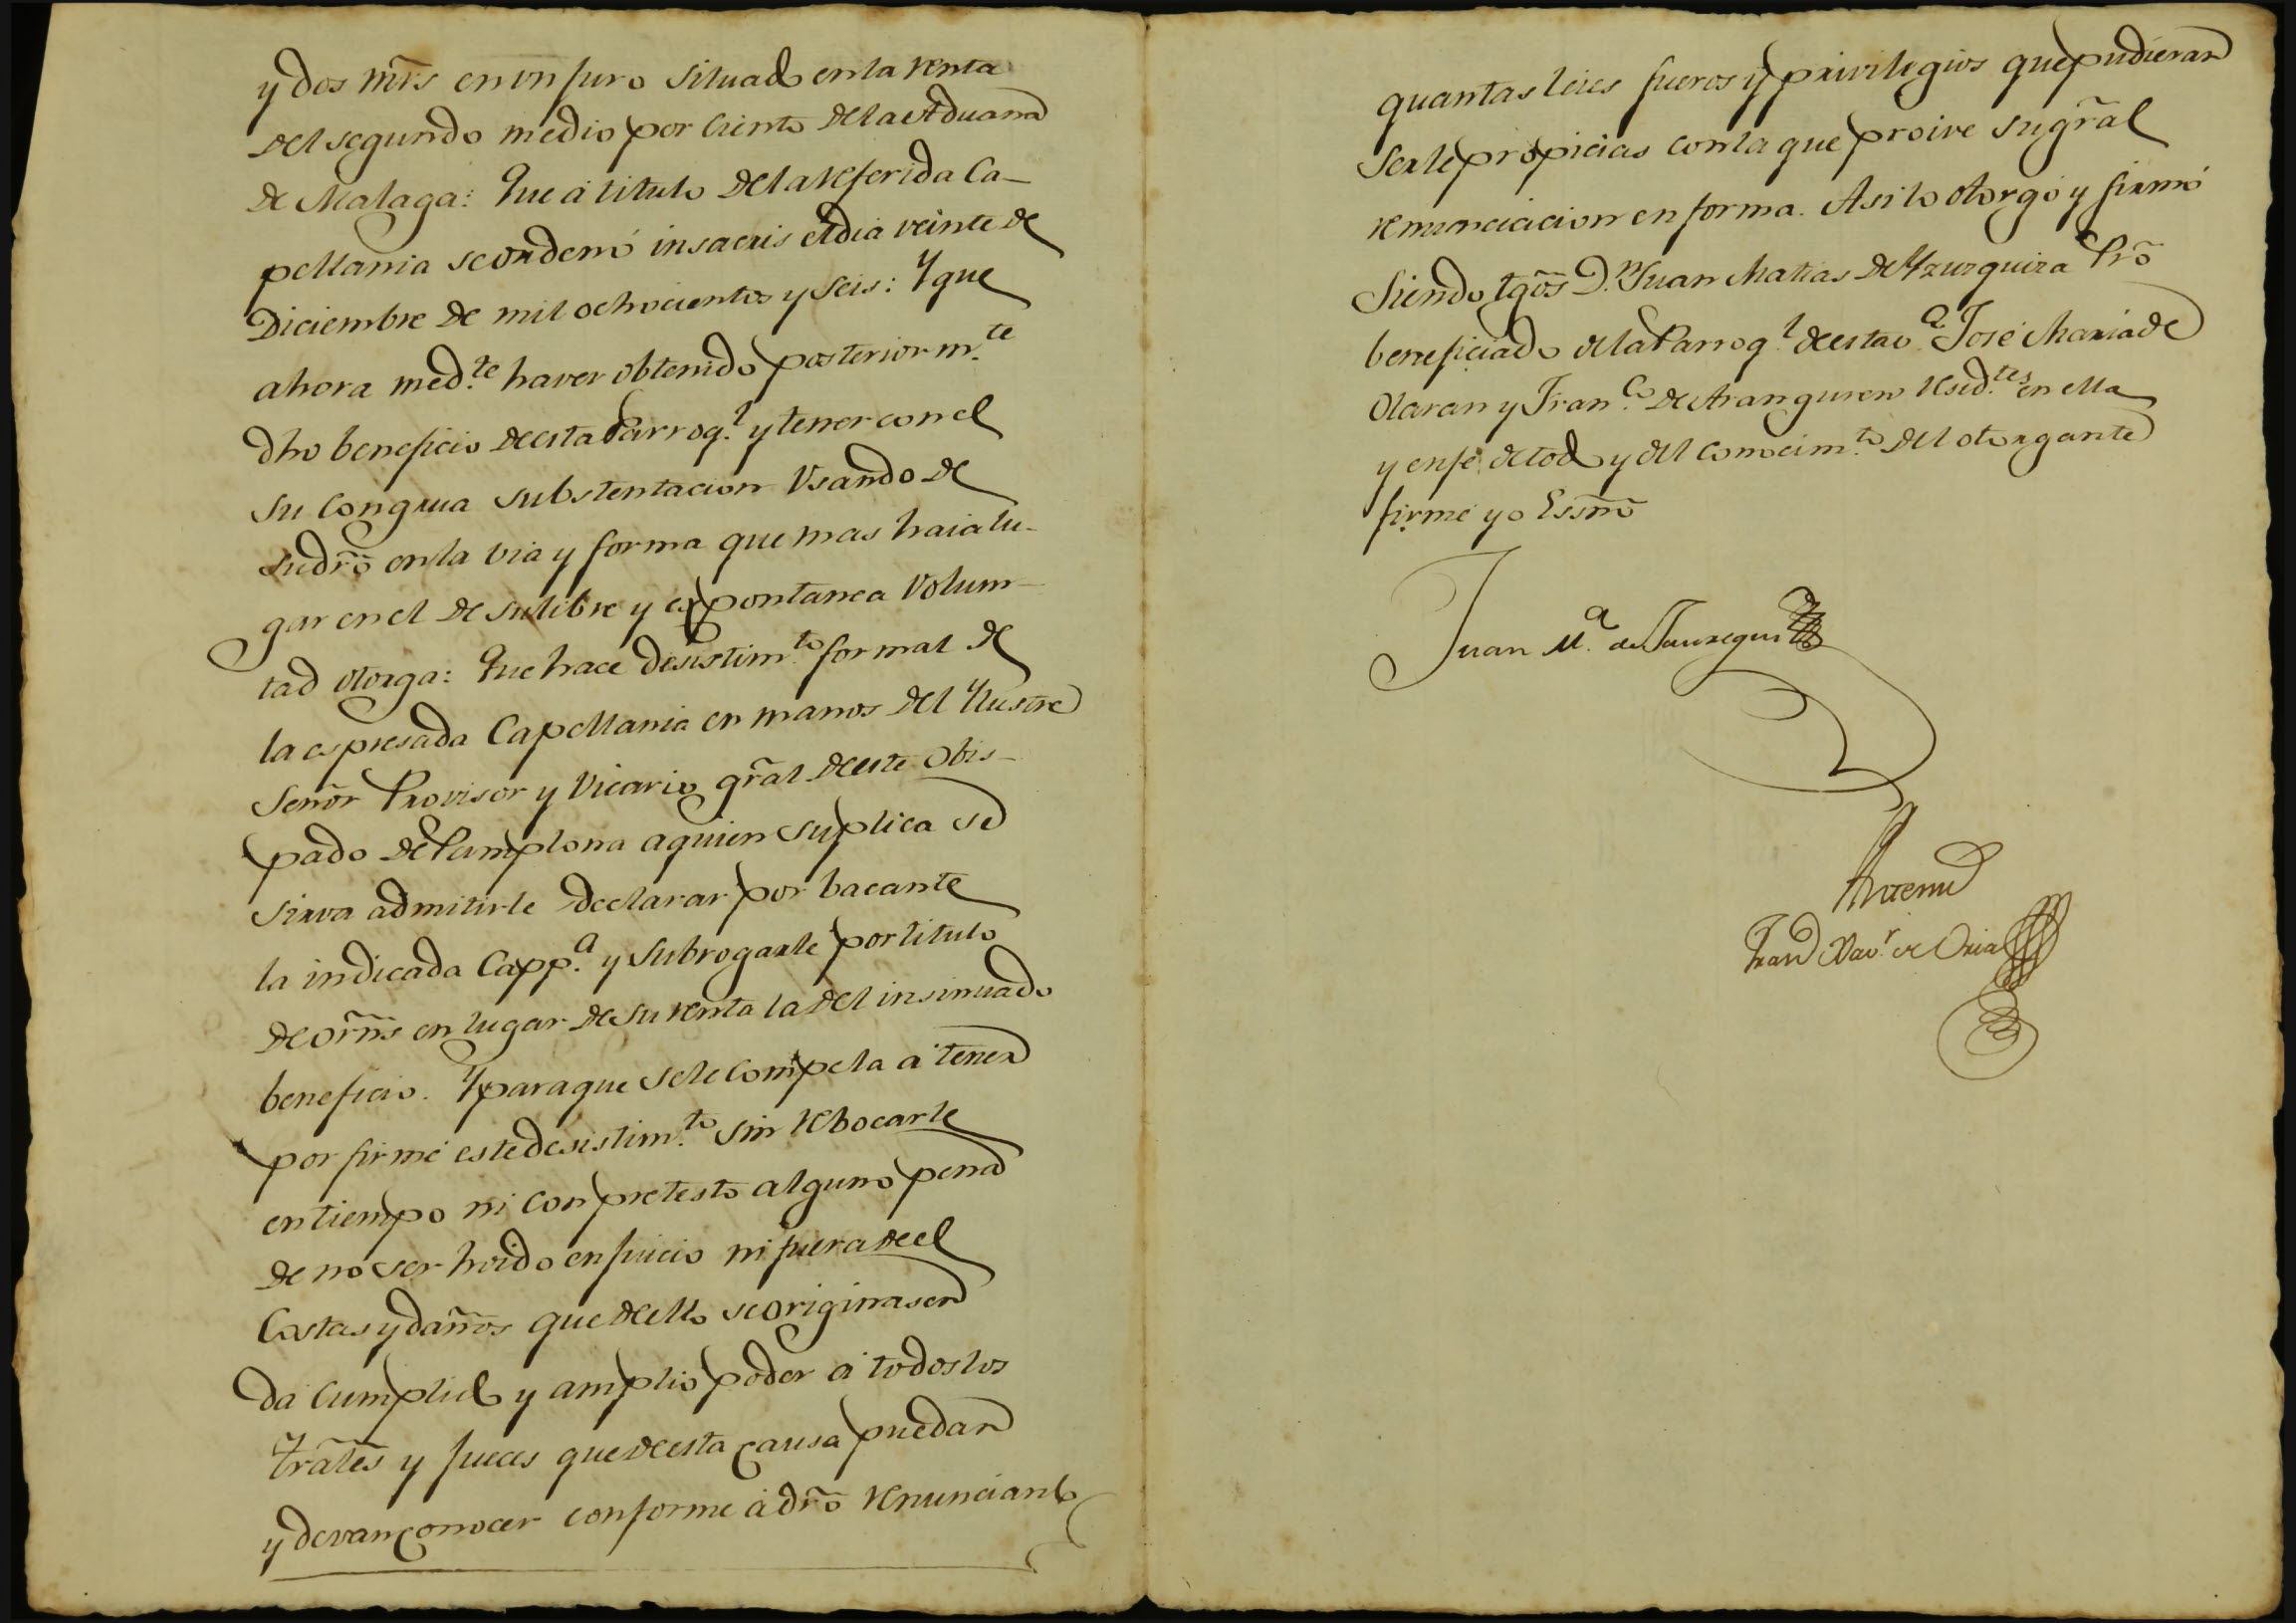 y dos mrs̃ en vn juro situado en la renta
del segundo medio por ciento de la Aduana
de Malaga: Que á titulo de la referida Ca-
pellania se ordenó in sacris el dia veinte de
Diciembre de mil ochocientos y seis: Y que
ahora med.te haver obtenido posteriorm.te
dho beneficio de esta Parroq.l y tener con el
su Congrua substentacion Vsando de
su dr̃o en la via y forma que mas haia lu-
gar en el de su libre y expontanea Volun-
tad otorga: Que hace desistim.to formal de
la espresada Capellania en manos del Ylustre
Señor Provisor y Vicario gr̃al de este Obis-
pado de Pamplona a quien suplica se
sirva admitirle declarar por bacante
la indicada Capp.a y subrogarle por titulo
de orñs en lugar de su renta la del insinuado
beneficio. Y para que se le compela á tener
por firme este desistim.to sin rebocarle
en tiempo ni con pretesto alguno pena
de no ser hoido en juicio ni fuera de el
Costas y daños que de ello se originasen
dá Cumplido y amplio poder á todos los
Tr̃ales y jueces que de esta causa puedan
y devan conocer conforme á dr̃o renunciando
quantas leies fueros y privilegios que pudieran
serle propicias con la que proive su gr̃al
renunciacion en forma. Asi lo otorgó y firmó
siendo tgõs D.n Juan Matias de Yzurquiza Prõ
beneficiado de la Parroq.l de esta v.a José Maria de
Olaran y Fran.co de Aranguren resid.tes en ella
y en fe de todo y del conocim.to del otorgante
firmé yo Essño
Juan M.a de Jauregui
Ante mi
Fran Xav.r de Oria